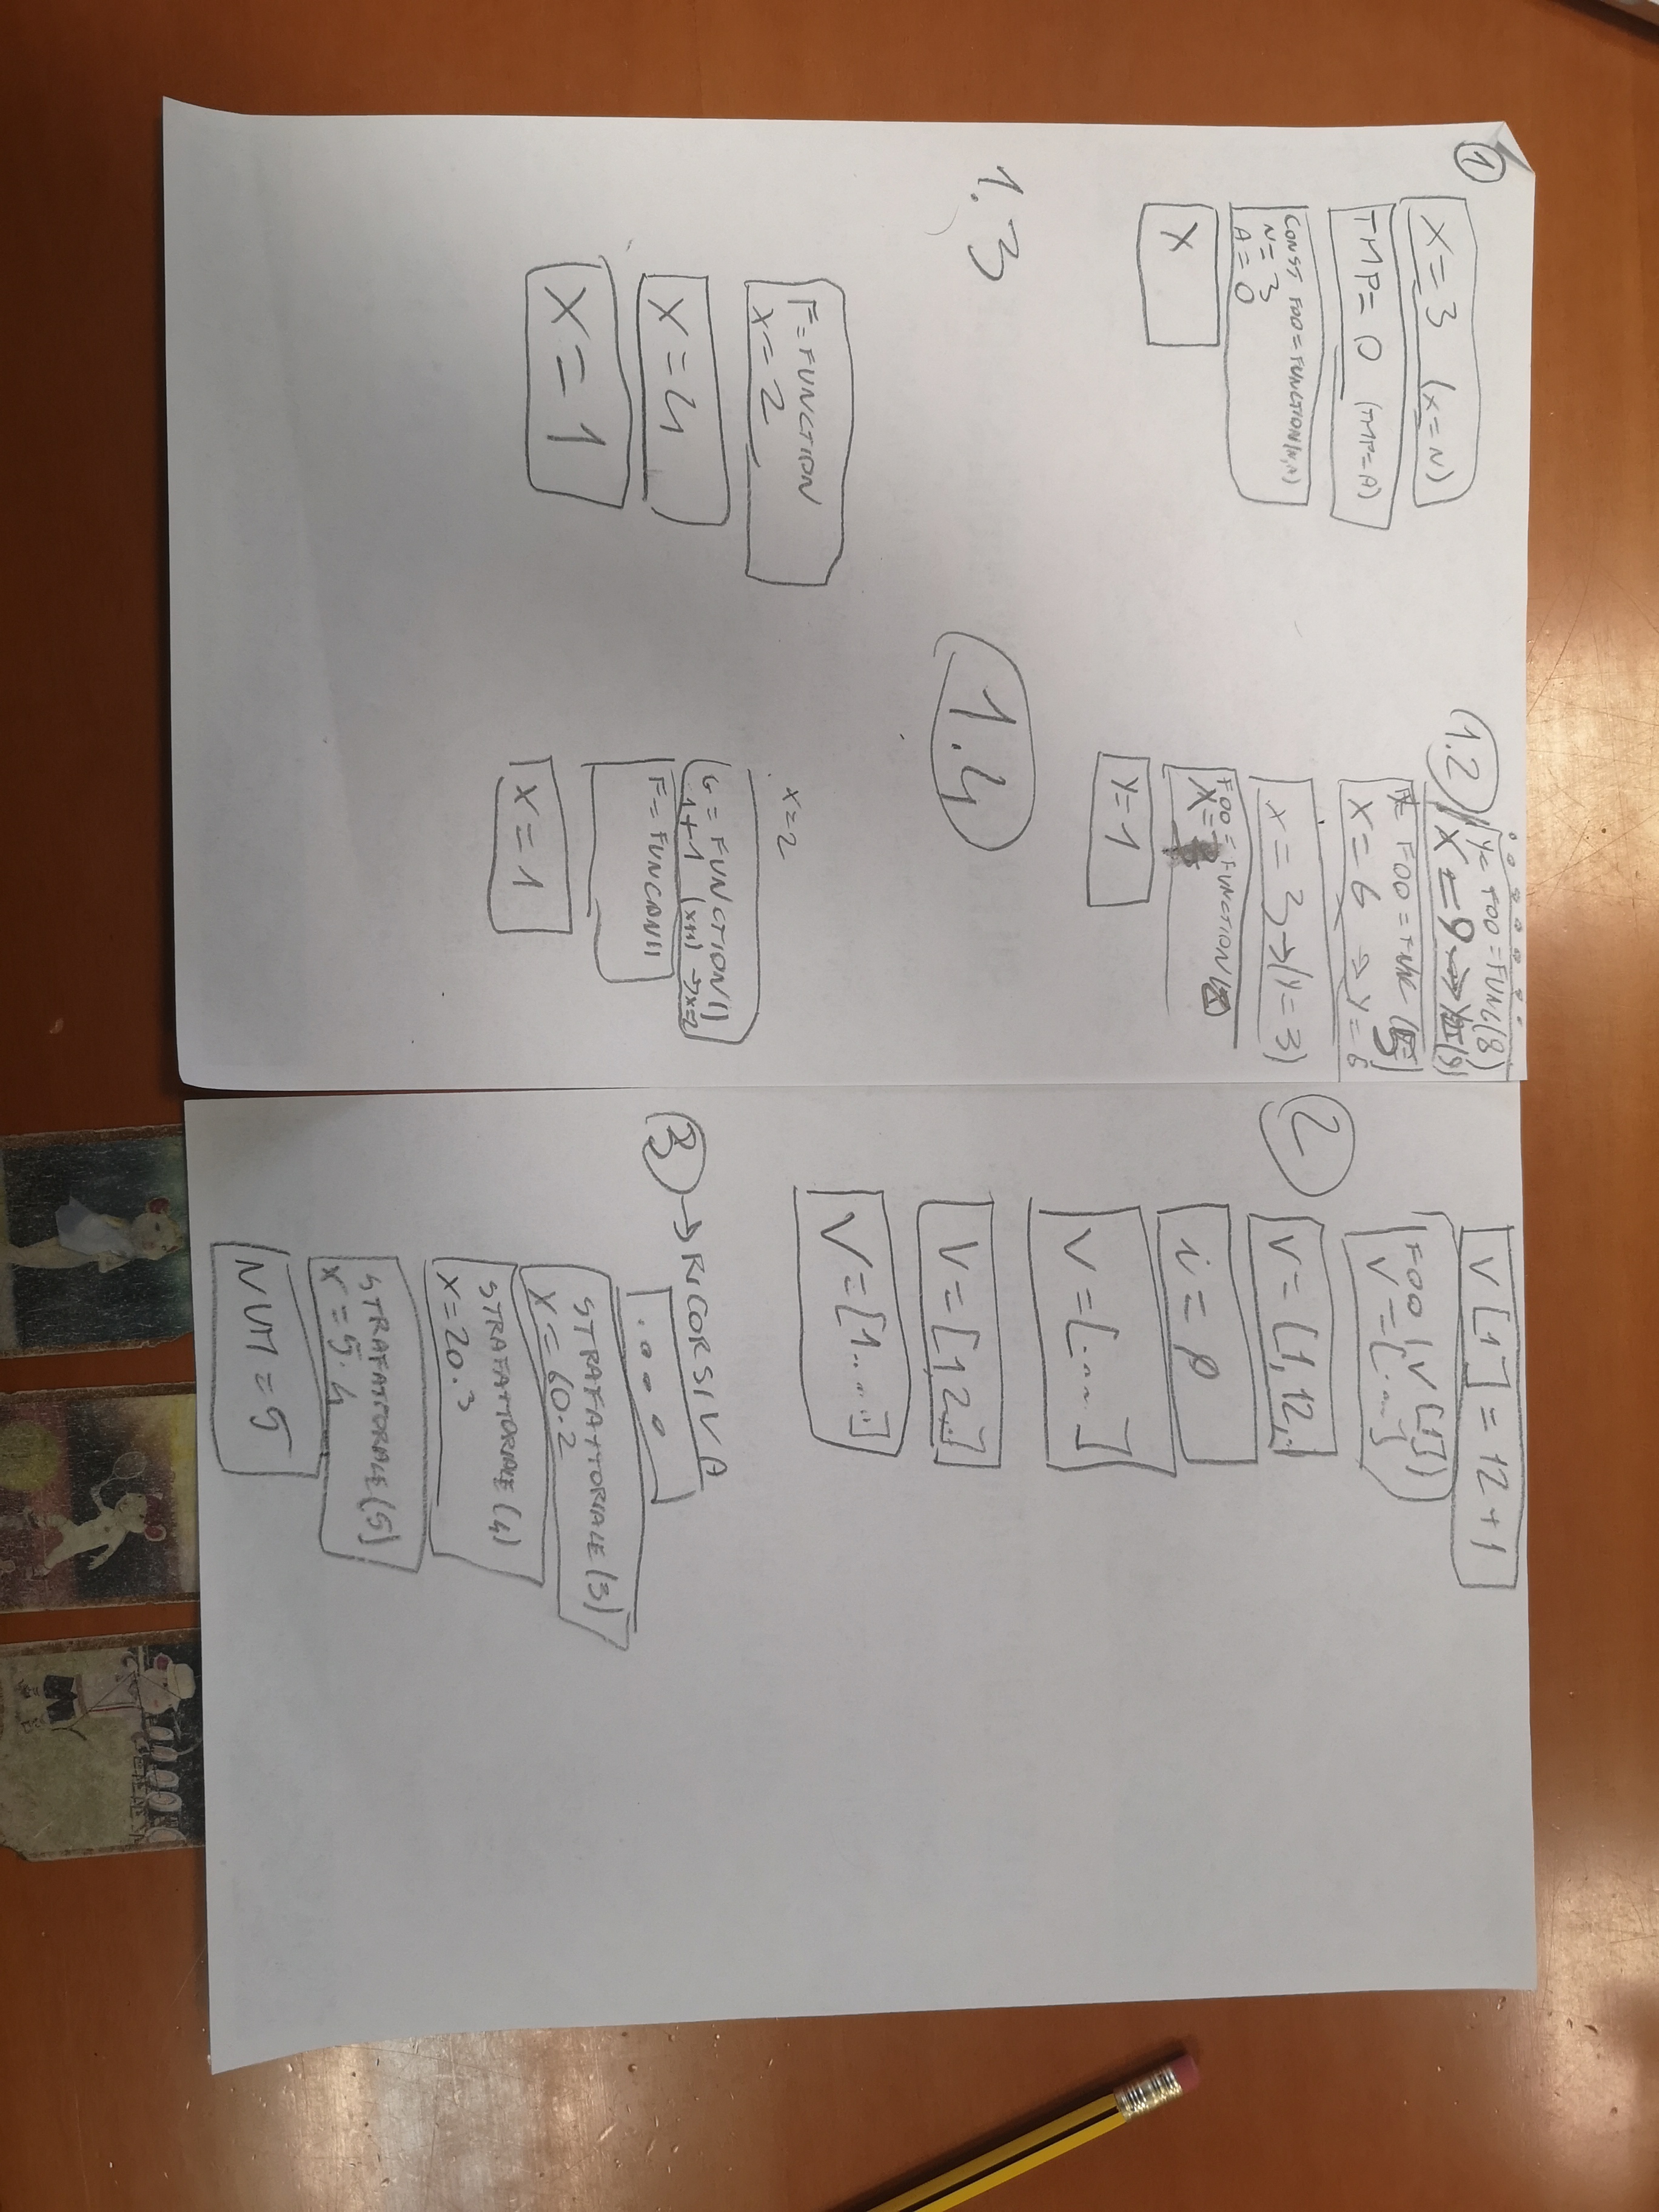 1
X = 3 (X = N)
TMP = 0 (TMP = A)
CONST FOO = FUNCTION(N,A)
N = 3
A = 0
X
1.2
Y = FOO = FUNC(8)
X = 9 →
FOO =
X = 6 → Y = 6
X = 3 → (Y = 3)
FOO = FUNCTION
X =
Y = 1
1.3
F = FUNCTION
X = 2
X = 4
X = 1
1.4
X = 2
G = FUNCTION()
1 + 1 (X+1) → X = 2
F = FUNCAN()
X = 1
2
V[1] = 12 + 1
FOO(V[1])
V = [...]
V = [1,12,]
i = 0
V = [....]
V = [1,2..]
V = [1.....]
3 → RICORSIVA
. . . .
STRAFATTORIALE (3)
X = 60.2
STRAFATTORIALE (4)
X = 20.3
STRAFATTORIALE (5)
X = 5.4
NUM = 5